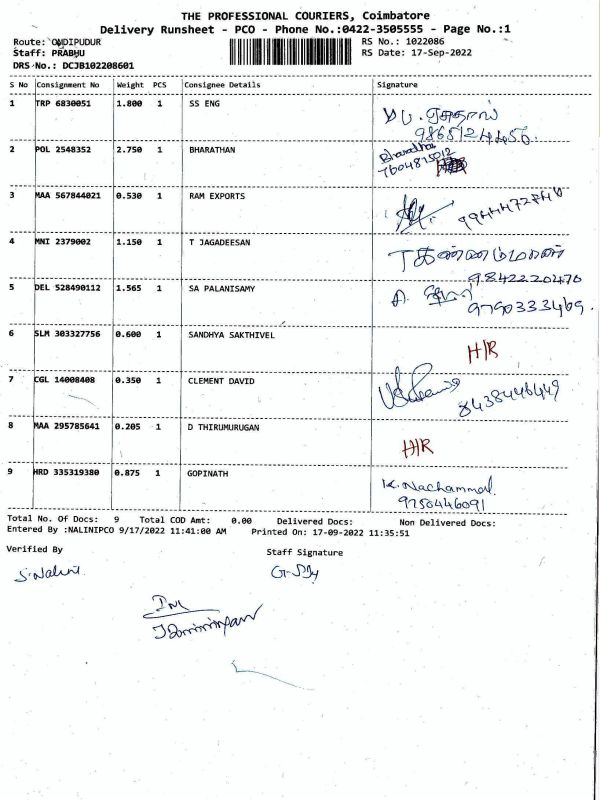 THE PROFESSIONAL COURIERS, Coimbatore
Delivery Runsheet - PCO - Phone No.:0422-3505555 - Page No.:1
Route: ONDIPUDUR RS No.: 1022086
Staff: PRABHU RS Date: 17-Sep-2022
DRS No.: DCJB102208601
S No Consignment No Weight PCS Consignee Details Signature
1 TRP 6830051 1.800 1 SS ENG
9865124456.
2 POL 2548352 2.750 1 BHARATHAN Bharathan
7604815012
3 MAA 567844021 0.530 1 RAM EXPORTS
4 MNI 2379002 1.150 1 T JAGADEESAN
9842220470
5 DEL 528490112 1.565 1 SA PALANISAMY
9790333469.
6 SLM 303327756 0.600 1 SANDHYA SAKTHIVEL H/R
7 CGL 14008408 0.350 1 CLEMENT DAVID
8438446449
8 MAA 295785641 0.205 1 D THIRUMURUGAN H/R
9 HRD 335319380 0.875 1 GOPINATH K. Nachammal
9750446091
Total No. Of Docs: 9 Total COD Amt: 0.00 Delivered Docs: Non Delivered Docs:
Entered By :NALINIPCO 9/17/2022 11:41:00 AM Printed On: 17-09-2022 11:35:51
Verified By Staff Signature
S. Nalini